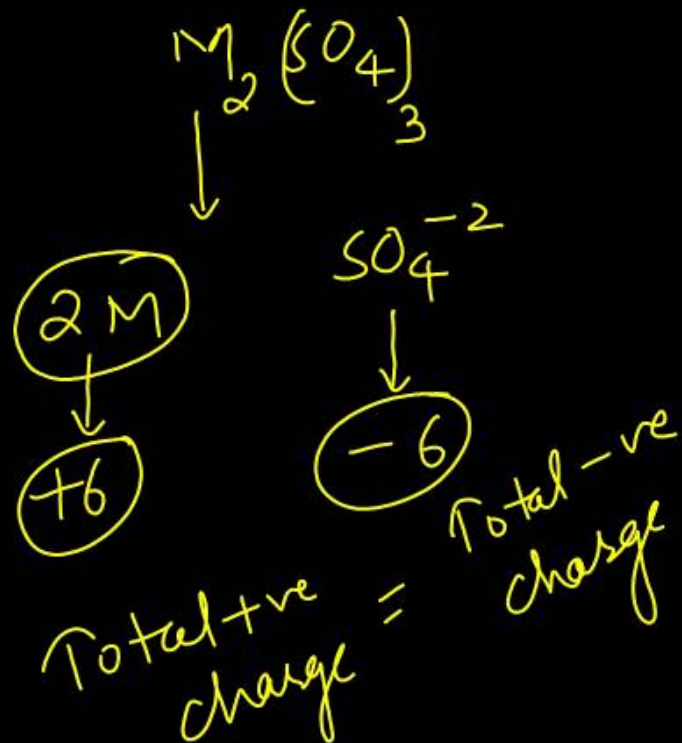 M₂(SO₄)₃
SO₄⁻²
2M
-6
+6
Total +ve charge = Total -ve charge